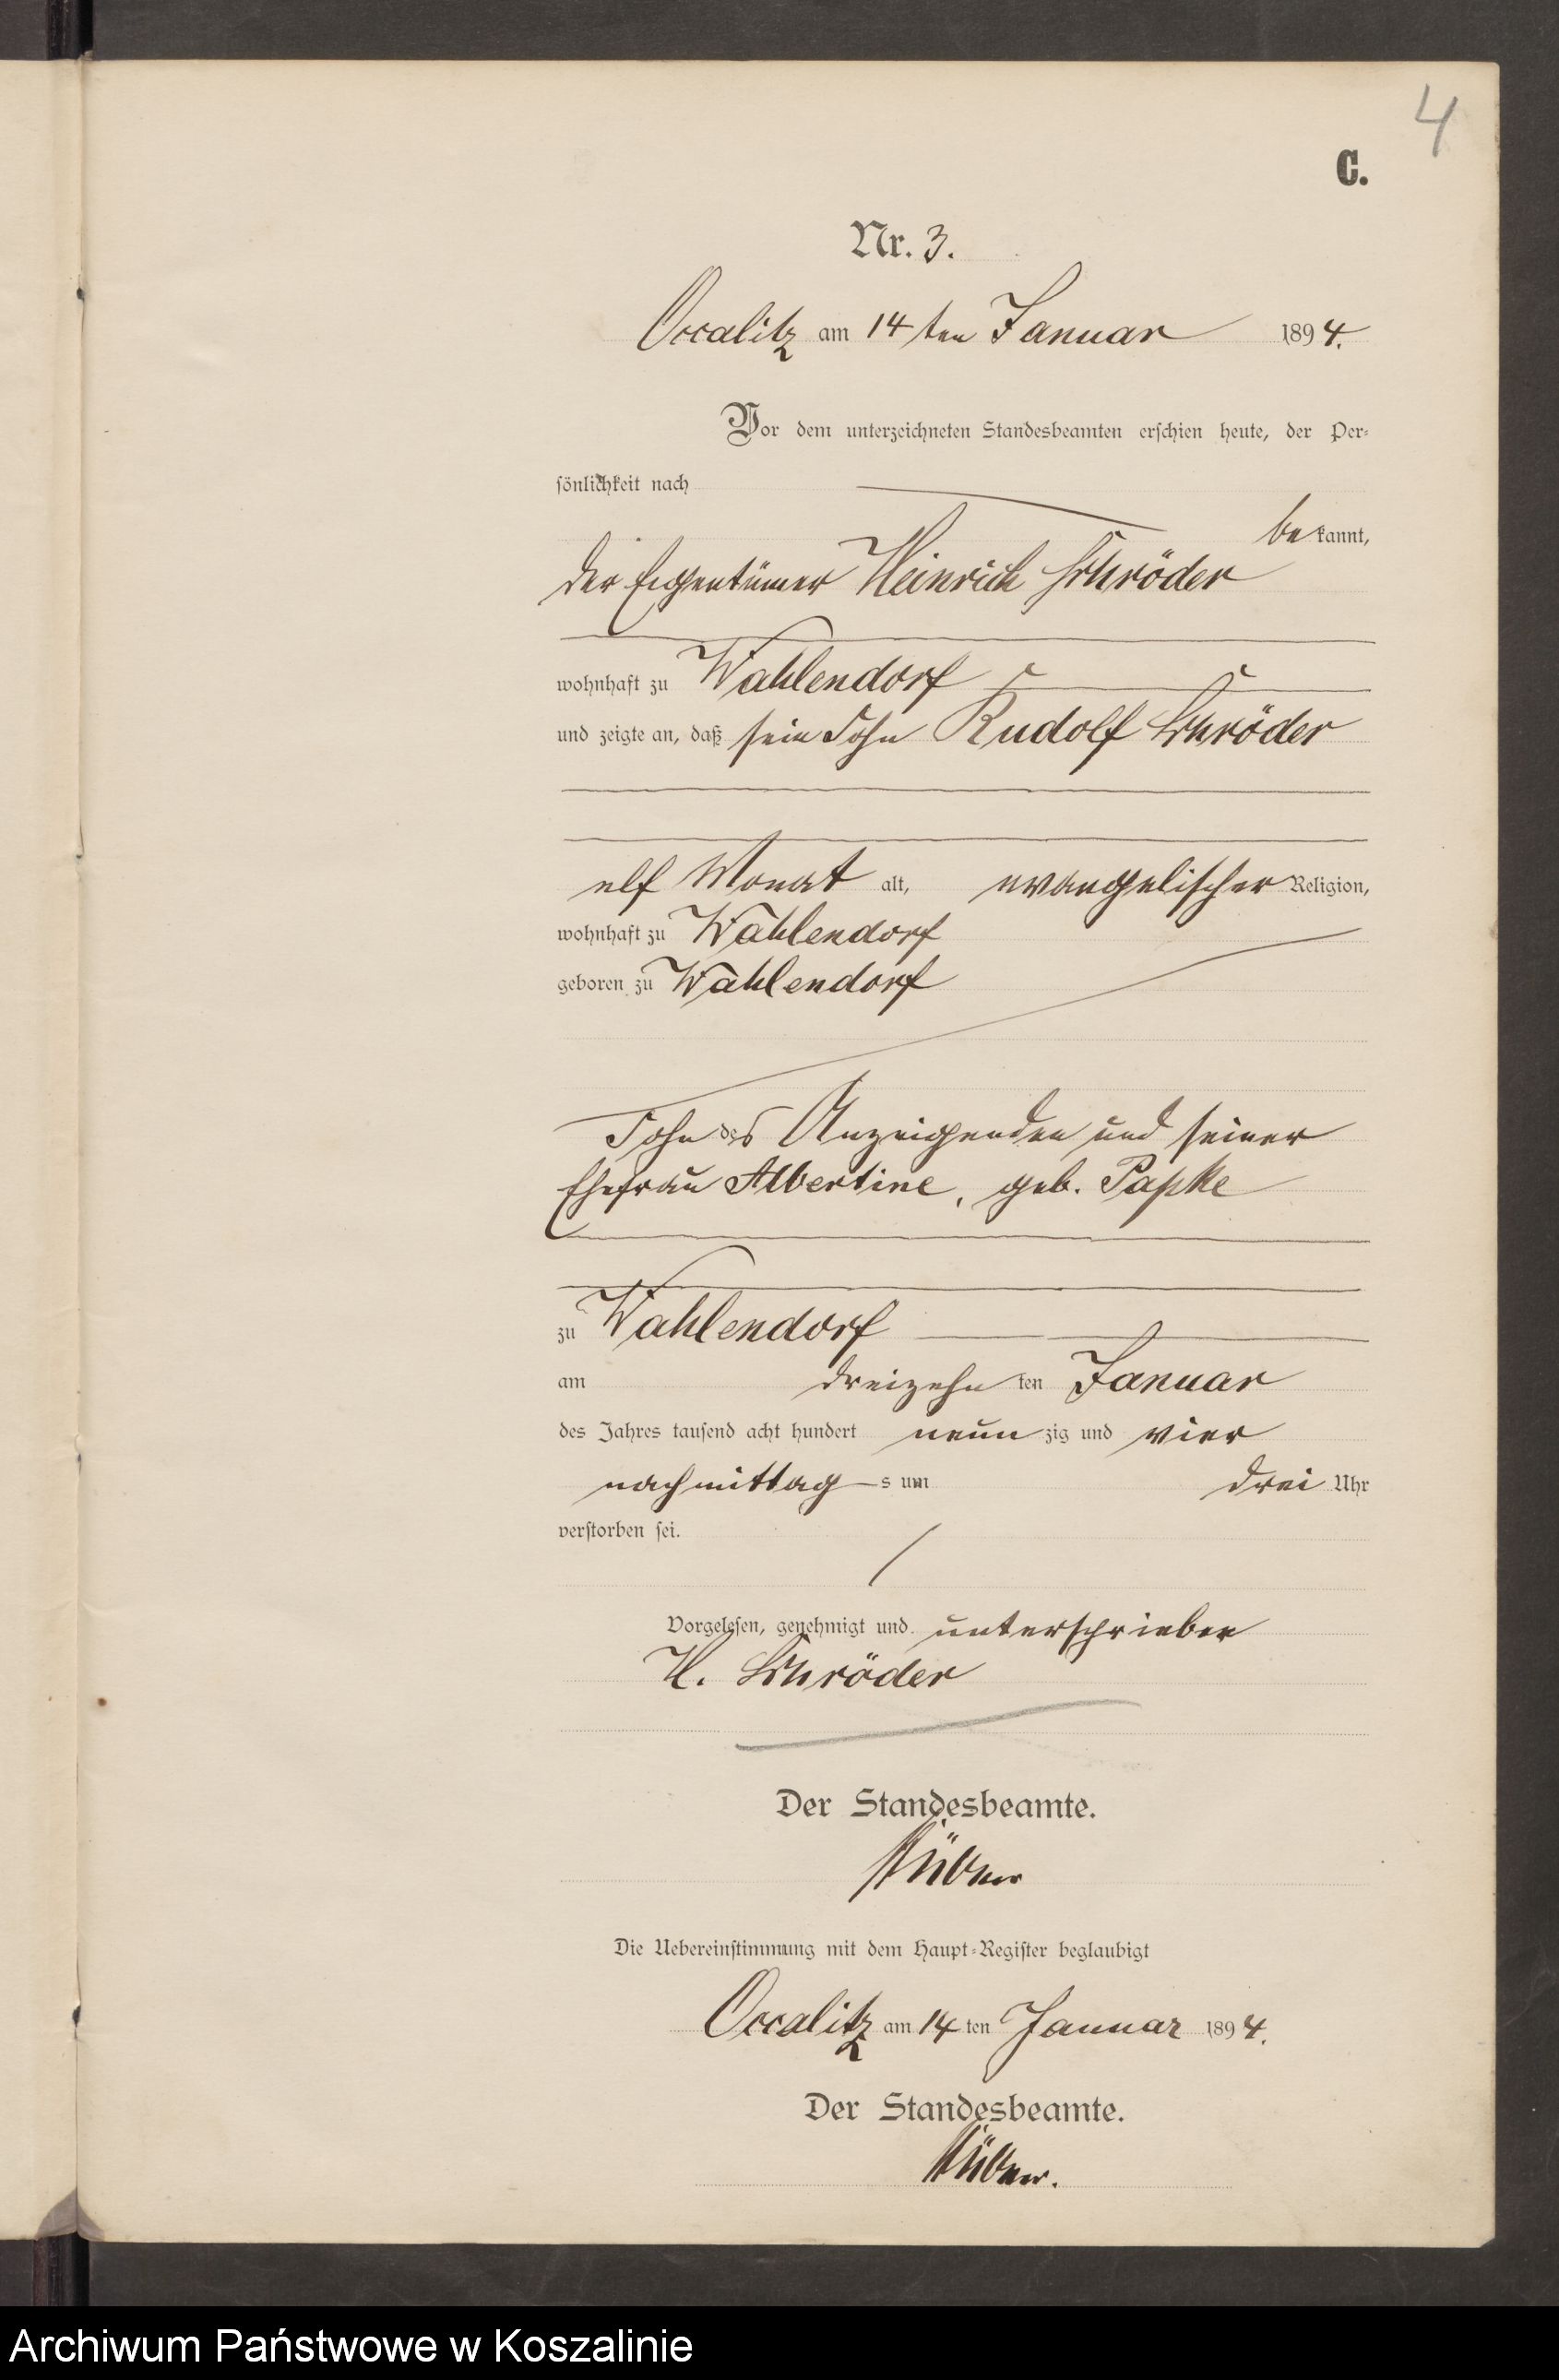 4
C.
Nr. 3.
Occalitz am 14ten Januar 1894.
Vor dem unterzeichneten Standesbeamten erschien heute, der Per-
sönlichkeit nach
bekannt,
der Eigentümer Heinrich Schröder
wohnhaft zu Wahlendorf
und zeigte an, daß sein Sohn Rudolf Schröder
elf Monat alt, evangelischer Religion,
wohnhaft zu Wahlendorf
geboren zu Wahlendorf
Sohn des Anzeigenden und seiner
Ehefrau Albertine, geb. Papke
zu Wahlendorf
am dreizehnten Januar
des Jahres tausend acht hundert neunzig und vier
nachmittags um drei Uhr
verstorben sei.
Vorgelesen, genehmigt und unterschrieben
H. Schröder
Der Standesbeamte.
Die Uebereinstimmung mit dem Haupt-Register beglaubigt
Occalitz am 14ten Januar 1894.
Der Standesbeamte.
Archiwum Państwowe w Koszalinie